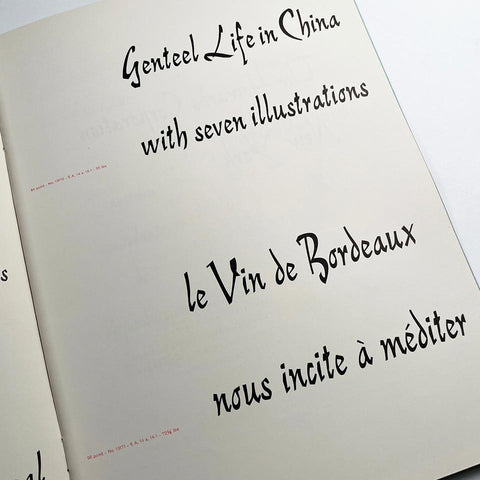 Genteel Life in China
with seven illustrations
le Vin de Bordeaux
nous incite à méditer